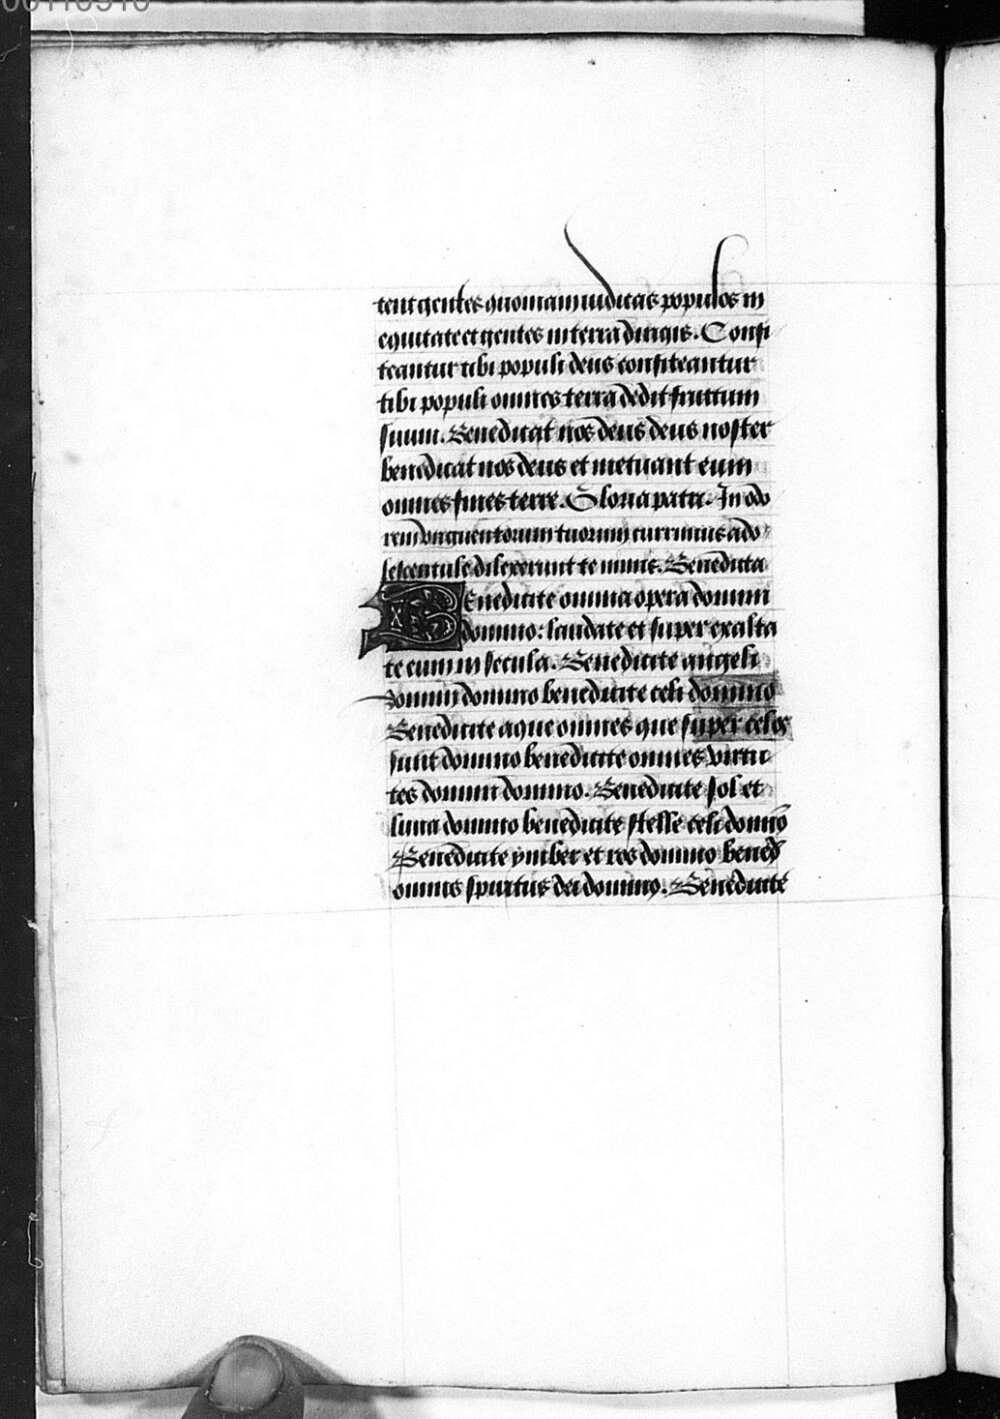 tent gentes quoniam iudicas populos in
equitate et gentes in terra dirigis. Confi
teantur tibi populi deus confiteantur
tibi populi omnes terra dedit fructum
suum. Benedicat nos deus deus noster
benedicat nos deus et metuant eum
omnes fines terre. Gloria patri. In odo
rem unguentorum tuorum currimus ado
lescentule dilexerunt te nimis. Benedicta
Benedicite omnia opera domini
domino: laudate et super exalta
te eum in secula. Benedicite angeli
domini domino benedicite celi domino
Benedicite aque omnes que super celos
sunt domino benedicite omnes virtu
tes domini domino. Benedicite sol et
luna domino benedicite stelle celi domino
Benedicite ymber et ros domino bened
omnis spiritus dei domino. Benedicite